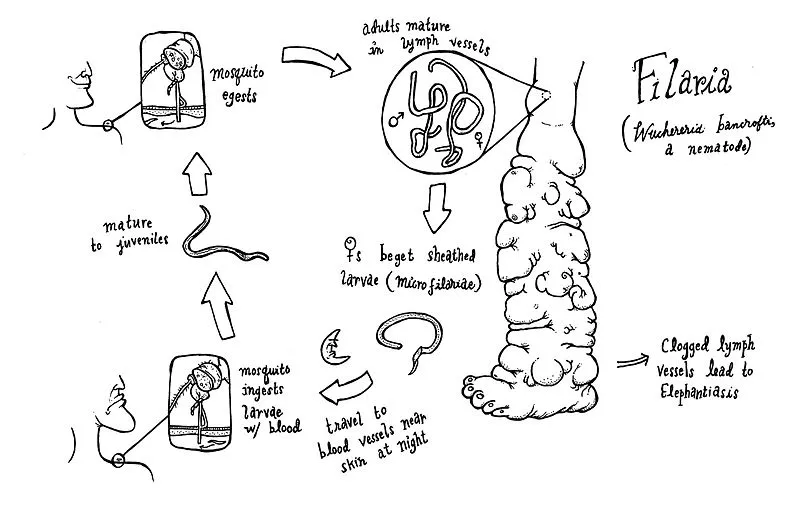 Filaria
(Wuchereria bancrofti,
a nematode)
adults mature
in lymph vessels
♂
♀
♀s beget sheathed
larvae (microfilariae)
travel to
blood vessels near
skin at night
mosquito
ingests
larvae
w/ blood
mature
to juveniles
mosquito
egests
Clogged lymph
vessels lead to
Elephantiasis